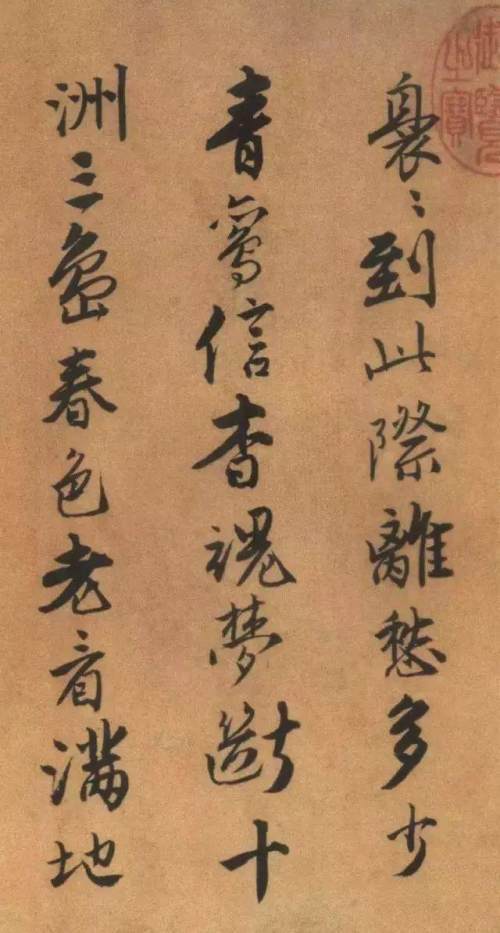 御覽
之寶
裊〻到此際離愁多少
青鸞信杳魂夢斷十
洲三島春色老看滿地